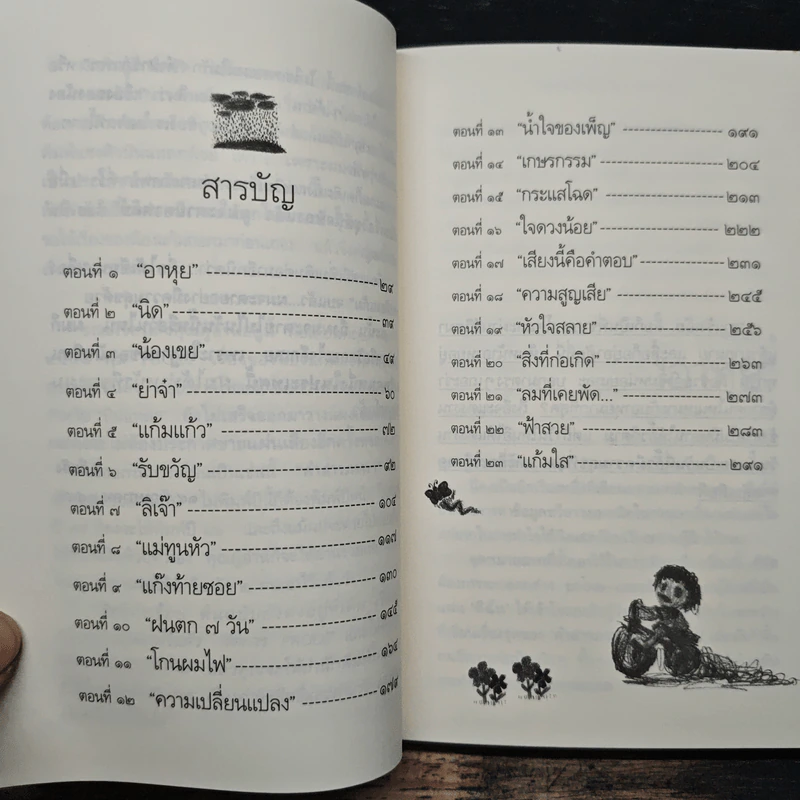 สารบัญ
ตอนที่ ๑ "อาหุย" ๒๙
ตอนที่ ๒ "นิด" ๓๙
ตอนที่ ๓ "น้องเขย" ๔๙
ตอนที่ ๔ "ย่าจ๋า" ๖๐
ตอนที่ ๕ "แก้มแก้ว" ๗๒
ตอนที่ ๖ "รับขวัญ" ๙๒
ตอนที่ ๗ "ลิเจ๊า" ๑๐๔
ตอนที่ ๘ "แม่ทูนหัว" ๑๑๗
ตอนที่ ๙ "แก๊งท้ายซอย" ๑๓๐
ตอนที่ ๑๐ "ฝนตก ๗ วัน" ๑๔๕
ตอนที่ ๑๑ "โกนผมไฟ" ๑๖๔
ตอนที่ ๑๒ "ความเปลี่ยนแปลง" ๑๗๙
ตอนที่ ๑๓ "น้ำใจของเพ็ญ" ๑๙๑
ตอนที่ ๑๔ "เกษรกรรม" ๒๐๔
ตอนที่ ๑๕ "กระแสโฉด" ๒๑๓
ตอนที่ ๑๖ "ใจดวงน้อย" ๒๒๒
ตอนที่ ๑๗ "เสียงนี้คือคำตอบ" ๒๓๑
ตอนที่ ๑๘ "ความสูญเสีย" ๒๔๕
ตอนที่ ๑๙ "หัวใจสลาย" ๒๕๖
ตอนที่ ๒๐ "สิ่งที่ก่อเกิด" ๒๖๓
ตอนที่ ๒๑ "ลมที่เคยพัด..." ๒๗๓
ตอนที่ ๒๒ "ฟ้าสวย" ๒๘๓
ตอนที่ ๒๓ "แก้มใส" ๒๙๑